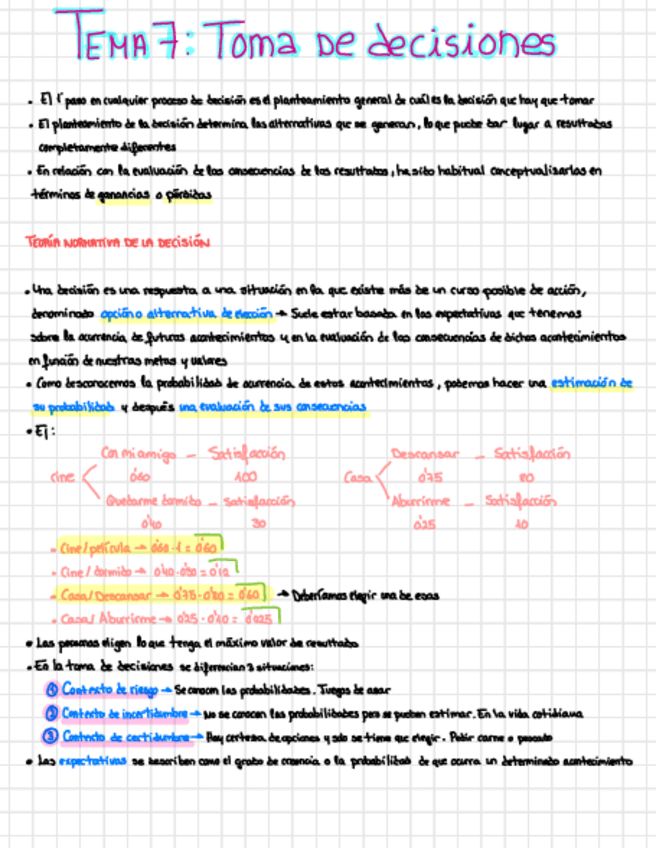 TEMA 7: Toma De decisiones
• El 1º paso en cualquier proceso de decisión es el planteamiento general de cuál es la decisión que hay que tomar
• El planteamiento de la decisión determina las alternativas que se generan, lo que puede dar lugar a resultados
completamente diferentes
• En relación con la evaluación de las consecuencias de los resultados, ha sido habitual conceptualizarlas en
términos de ganancias o pérdidas
TEORÍA NORMATIVA DE LA DECISIÓN
• Una decisión es una respuesta a una situación en la que existe más de un curso posible de acción,
denominado opción o alternativa de elección → Suele estar basada en las expectativas que tenemos
sobre la ocurrencia de futuros acontecimientos y en la evaluación de las consecuencias de dichos acontecimientos
en función de nuestras metas y valores
• Como desconocemos la probabilidad de ocurrencia de estos acontecimientos, podemos hacer una estimación de
su probabilidad y después una evaluación de sus consecuencias
• Ej:
Con mi amigo – Satisfacción Descansar – Satisfacción
cine < 0'60 100 Casa < 0'75 80
Quedarme dormido – Satisfacción Aburrirme – Satisfacción
0'40 30 0'25 10
- Cine/película → 0'60·1 = 0'60
- Cine/dormido → 0'40·0'30 = 0'12
- Casa/Descansar → 0'75·0'80 = 0'60 → Deberíamos elegir una de esas
- Casa/Aburrirme → 0'25·0'10 = 0'025
• Las personas eligen lo que tenga el máximo valor de resultado
• En la toma de decisiones se diferencian 3 situaciones:
① Contexto de riesgo → Se conocen las probabilidades. Juegos de azar
② Contexto de incertidumbre → No se conocen las probabilidades pero se pueden estimar. En la vida cotidiana
③ Contexto de certidumbre → Hay certeza de opciones y solo se tiene que elegir. Pedir carne o pescado
• Las expectativas se describen como el grado de creencia o la probabilidad de que ocurra un determinado acontecimiento